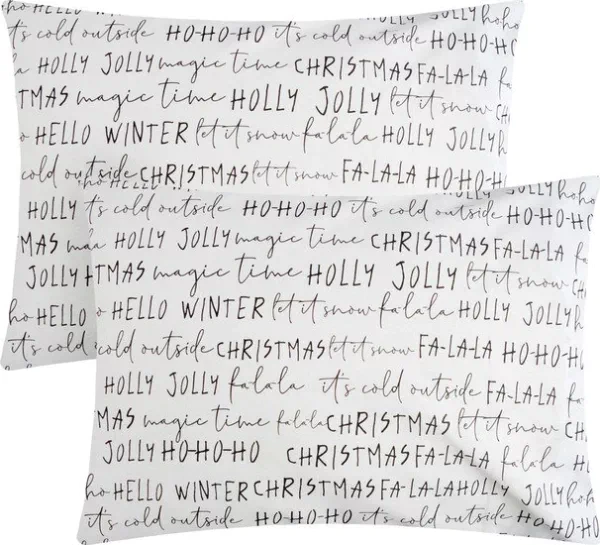 HOLLY JOLLY hoho
it's cold outside HO-HO-HO it's cold outside HO-HO-HO
HOLLY JOLLY magic time CHRISTMAS FA-LA-LA fa
TMAS magic time HOLLY JOLLY let it snow CH
HELLO WINTER let it snow falala HOLLY JOLLY h
cold outside CHRISTMAS let it snow FA-LA-LA HO-HO-H
HOLLY
MAS
JOLLY H
ho HELLO
it's cold
HOLLY JOLLY hoho
it's cold outside HO-HO-HO it's cold outside HO-HO-HO
la HOLLY JOLLY magic time CHRISTMAS FA-LA-LA fa
TMAS magic time HOLLY JOLLY let it snow CH
HELLO WINTER let it snow falala HOLLY JOLLY h
cold outside CHRISTMAS let it snow FA-LA-LA HO-HO-H
HOLLY JOLLY falala it's cold outside FA-LA-LA fa
MAS magic time falala CHRISTMAS let it snow CH
JOLLY HO-HO-HO CHRISTMAS FA-LA-LA falala H
ho HELLO WINTER CHRISTMAS FA-LA-LA HOLLY JOLLY hoho
it's cold outside HO-HO-HO it's cold outside HO-HO-H